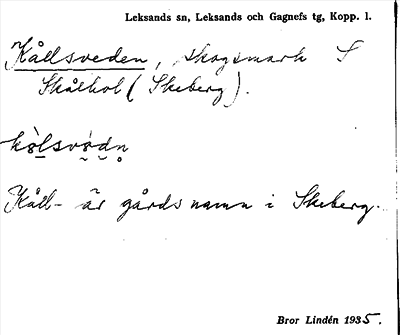 Leksands sn, Leksands och Gagnefs tg, Kopp. l.
Kållsveden, skogsmark S
Skålhol (Skeberg).
kòlsvòdn
Kåll- är gårdsnamn i Skeberg.
Bror Lindén 1935.